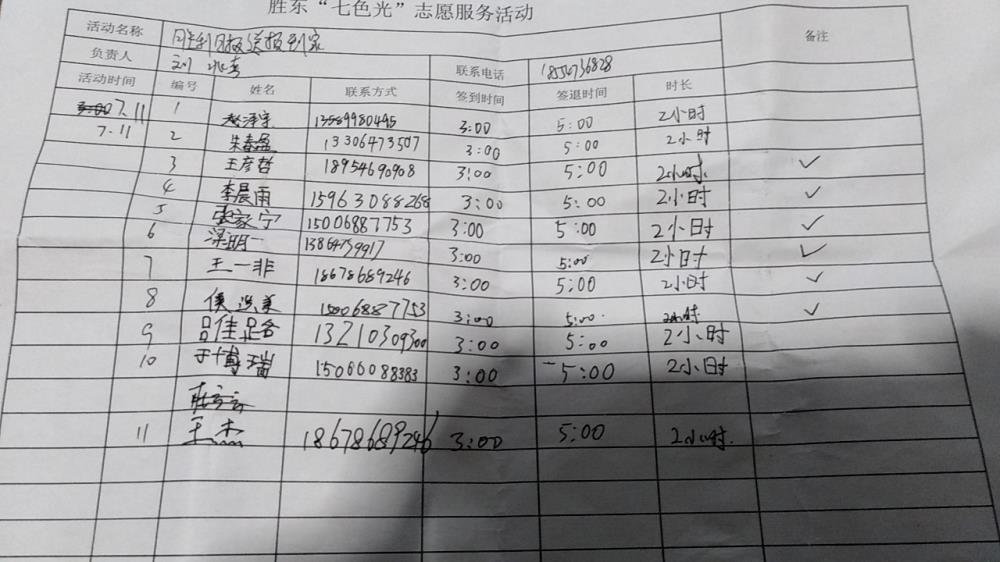 胜东“七色光”志愿服务活动
活动名称 胜利日报送报到家 备注
负责人 联系电话
活动时间 编号 姓名 联系方式 签到时间 签退时间 时长
7.11 1 13589980495 3:00 5:00 2小时
7.11 2 朱春盈 13306473507 3:00 5:00 2小时
3 王彦哲 18954690908 3:00 5:00 2小时 ✓
4 李晨雨 15963088268 3:00 5:00 2小时 ✓
5 张家宁 15006887753 3:00 5:00 2小时 ✓
6 梁明一 3:00 5:00 2小时 ✓
7 王一非 18678689246 3:00 5:00 2小时 ✓
8 15006887753 3:00 5:00 2小时 ✓
9 13210309300 3:00 5:00 2小时
10 于博瑞 15066088383 3:00 5:00 2小时
11 王杰 18678689246 3:00 5:00 2小时